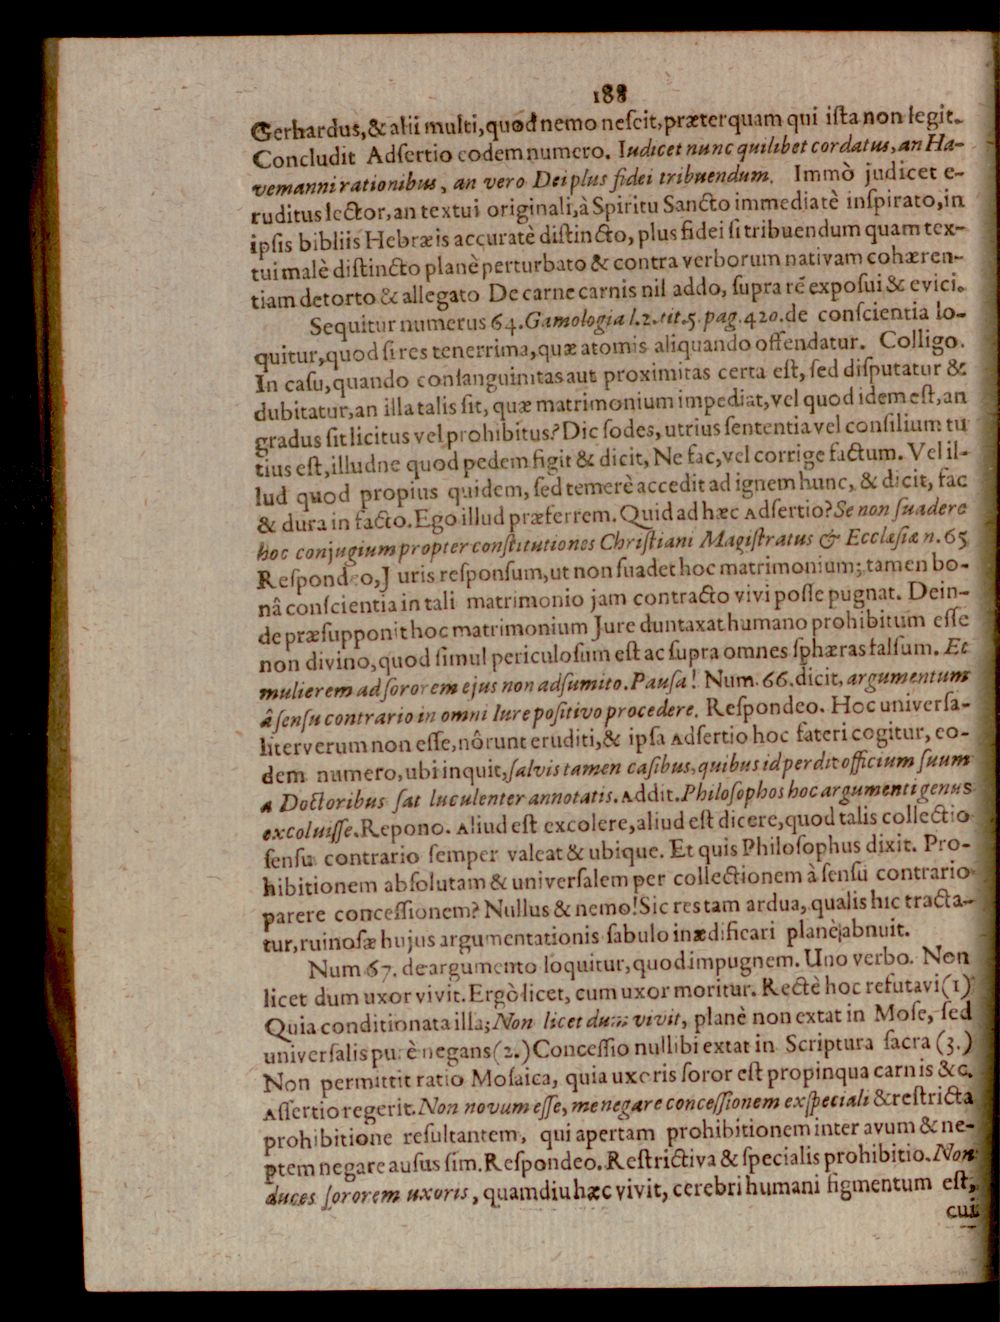 188
Gerhardus, & alii multi, quod nemo neſcit, præterquam qui iſta non legit.
Concludit Adſertio eodem numero. Iudicet nunc quilibet cordatus, an Ha-
vemanni rationibus, an vero Dei plus fidei tribuendum. Immò judicet e-
ruditus lector, an textui originali, à Spiritu Sancto immediatè inſpirato, in
ipſis bibliis Hebræis accuratè diſtincto, plus fidei ſi tribuendum quam tex-
tui malè diſtincto planè perturbato & contra verborum nativam cohæren-
tiam detorto & allegato De carne carnis nil addo, ſupra rē expoſui & evici.
Sequitur numerus 64. Gamologia l. 2. tit. 5. pag. 420. de conſcientia lo-
quitur, quod ſi res tenerrima, quæ atomis aliquando offendatur. Colligo.
In caſu, quando conſanguinitas aut proximitas certa eſt, ſed diſputatur &
dubitatur, an illa talis ſit, quæ matrimonium impediat, vel quod idem eſt, an
gradus ſit licitus vel prohibitus? Dic ſodes, utrius ſententia vel conſilium tu
tius eſt, illudne quod pedem figit & dicit, Ne fac, vel corrige factum. Vel il-
lud quod propius quidem, ſed temerè accedit ad ignem hunc, & dicit, fac
& dura in facto. Ego illud præferrem. Quid ad hæc Adſertio? Se non ſuadere
hoc conjugium propter conſtitutiones Chriſtiani Magiſtratus & Eccleſiæ n. 65
Reſpondeo, Juris reſponſum, ut non ſuadet hoc matrimonium; tamen bo-
nâ conſcientia in tali matrimonio jam contracto vivi poſſe pugnat. Dein-
de præſupponit hoc matrimonium Jure duntaxat humano prohibitum eſſe
non divino, quod ſimul periculoſum eſt ac ſupra omnes ſphæras falſum. Et
mulierem ad ſororem ejus non adſumito. Pauſa! Num. 66. dicit, argumentum
â ſenſu contrario in omni Iure poſitivo procedere. Reſpondeo. Hoc univerſa-
liter verum non eſſe, nôrunt eruditi, & ipſa Adſertio hoc fateri cogitur, eo-
dem numero, ubi inquit, ſalvis tamen caſibus, quibus id perdit officium ſuum
a Doctoribus ſat luculenter annotatis. Addit. Philoſophos hoc argumenti genus
excoluiſſe. Repono. Aliud eſt excolere, aliud eſt dicere, quod talis collectio
ſenſu contrario ſemper valeat & ubique. Et quis Philoſophus dixit. Pro-
hibitionem abſolutam & univerſalem per collectionem à ſenſu contrario
parere conceſſionem? Nullus & nemo! Sic res tam ardua, qualis hic tracta-
tur, ruinoſæ hujus argumentationis ſabulo inædificari planè abnuit.
Num 67. de argumento loquitur, quod impugnem. Uno verbo. Non
licet dum uxor vivit. Ergò licet, cum uxor moritur. Rectè hoc refutavi (1)
Quia conditionata illa; Non licet dum vivit, planè non extat in Moſe, ſed
univerſalis purè negans (2.) Conceſſio nullibi extat in Scriptura ſacra (3.)
Non permittit ratio Moſaica, quia uxoris ſoror eſt propinqua carnis &c.
Aſſertio regerit. Non novum eſſe, me negare conceſſionem ex ſpeciali & reſtricta
prohibitione reſultantem, qui apertam prohibitionem inter avum & ne-
ptem negare auſus ſim. Reſpondeo. Reſtrictiva & ſpecialis prohibitio. Non
duces ſororem uxoris, quamdiu hæc vivit, cerebri humani figmentum eſt,
cui